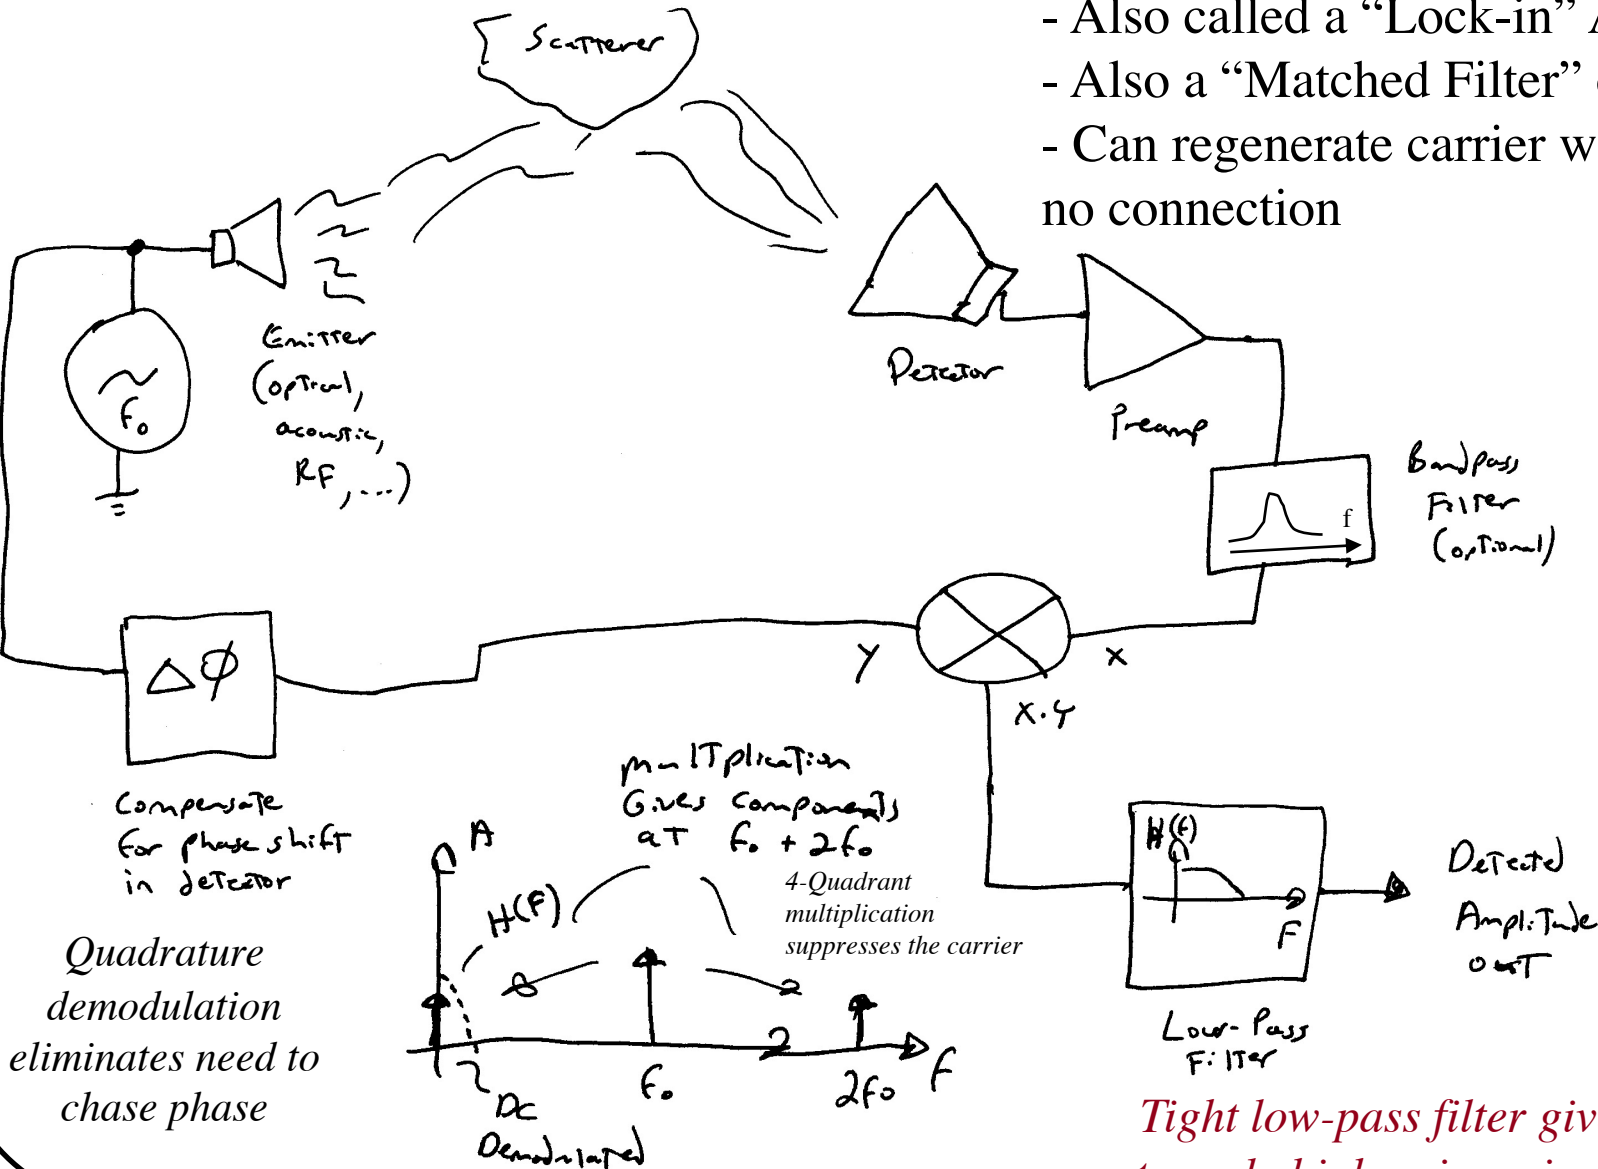 - Also called a “Lock-in” A
- Also a “Matched Filter”
- Can regenerate carrier w
no connection
Scatterer
Emitter
(optical,
acoustic,
RF, ...)
fo
Detector
Preamp
Bandpass
Filter
(optional)
f
Δϕ
Compensate
for phase shift
in detector
y
x
x·y
multplication
Gives components
at fo + 2fo
4-Quadrant
multiplication
suppresses the carrier
A
H(F)
fo
2fo
F
DC
Demodulated
H(f)
F
Low-Pass
Filter
Detected
Amplitude
out
Quadrature
demodulation
eliminates need to
chase phase
Tight low-pass filter giv